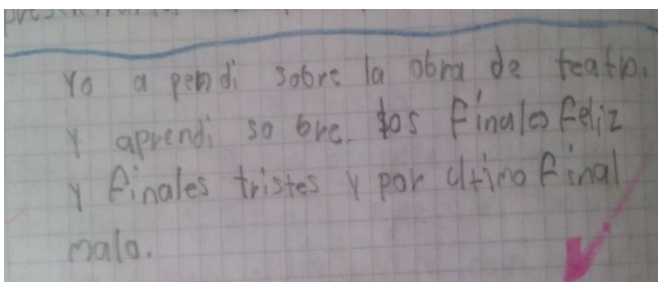 Yo a pendi sobre la obra de teatro.
Y aprendi so bre los finales feliz
Y finales tristes y por ultimo final
malo.